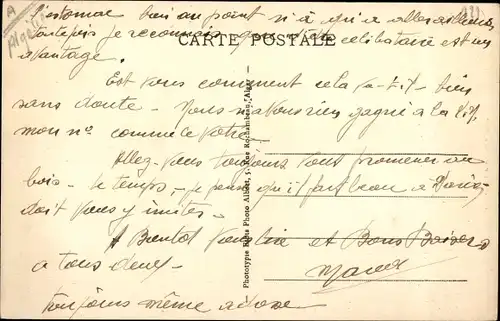 A
Alger
l'estomac bien au point ni à
toutefois je reconnais que célibataire est un
CARTE POSTALE
avantage.
Et vous comment cela va-t-il - bien
sans doute - nous n'avons rien gagné à la
mon n° comme le vôtre.
Allez-vous toujours vous promener au
bois - le temps, - je pense qu'il fait beau à Paris,
doit vous y inviter -
A Bientôt vous lire et Bons Baisers
à tous deux -
toujours même adresse -
Phototypie Réas Photo Albert, 5, Rue Rochambeau, Alger